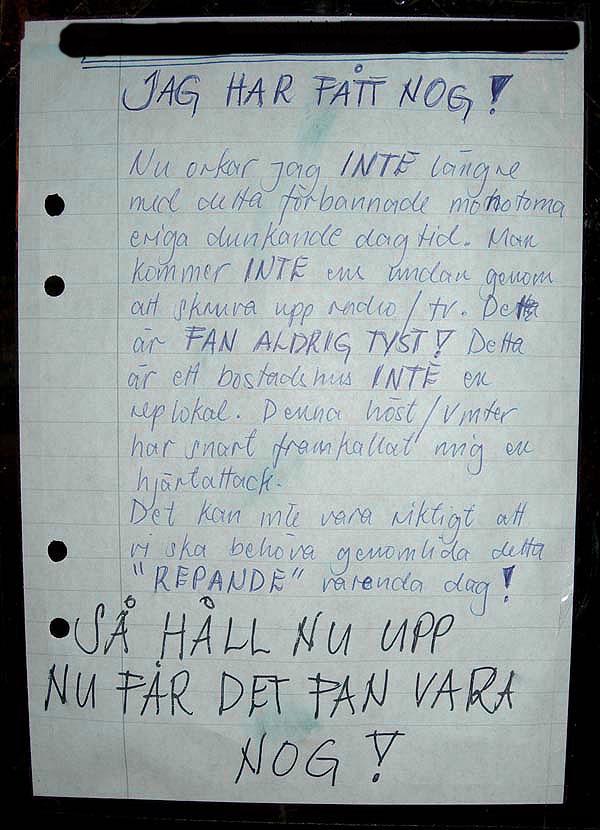 JAG HAR FÅTT NOG!
Nu orkar jag INTE längre
med detta förbannade monotoma
eviga dunkande dagtid. Man
kommer INTE ens undan genom
att skruva upp radio/tv. Detta
är FAN ALDRIG TYST! Detta
är ett bostadshus INTE en
replokal. Denna höst/vinter
har snart framkallat mig en
hjärtattack.
Det kan inte vara riktigt att
vi ska behöva genomlida detta
"REPANDE" varenda dag!
SÅ HÅLL NU UPP
NU FÅR DET FAN VARA
NOG!